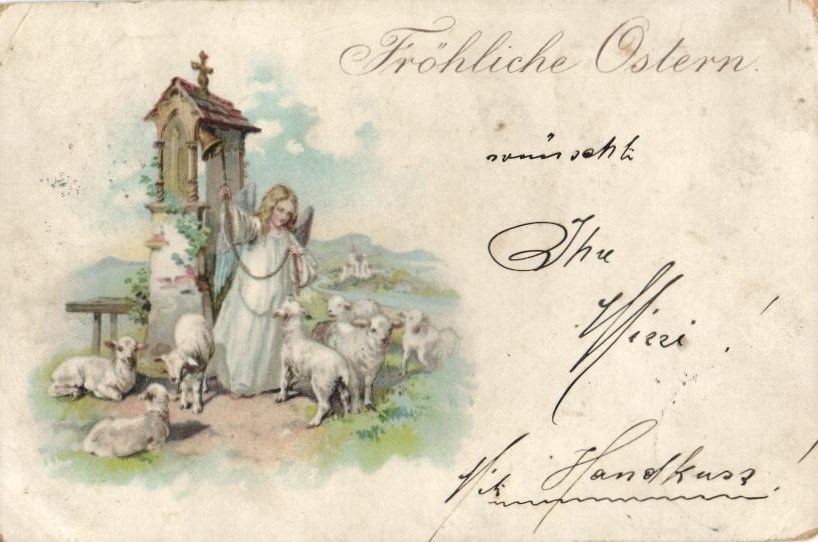 Fröhliche Ostern.
wünscht
Ihre
Mizzi!
Mit Handkuss!